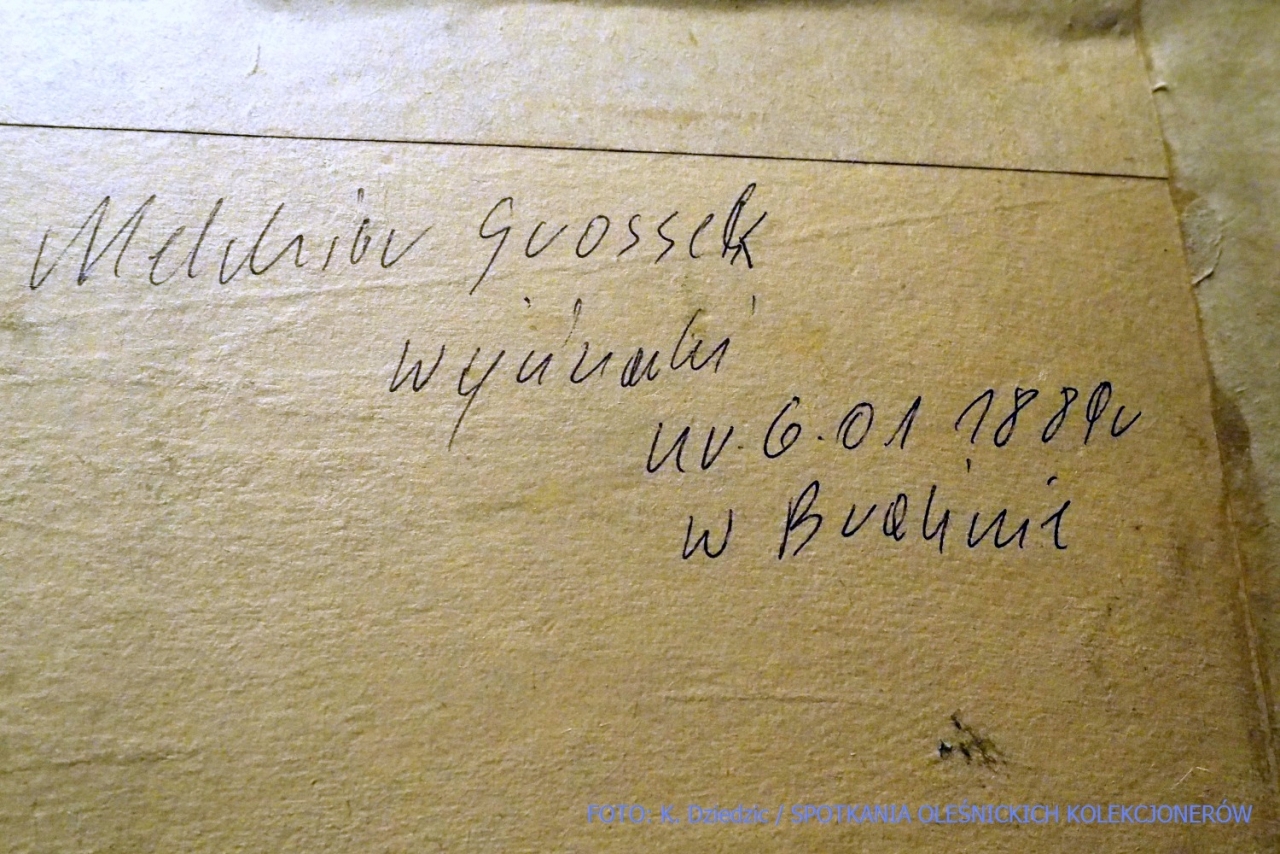 Melchior Grossek
wycinanki
ur. 6.01 1889r
w Bralinie
FOTO: K. Dziedzic / SPOTKANIA OLEŚNICKICH KOLEKCJONERÓW